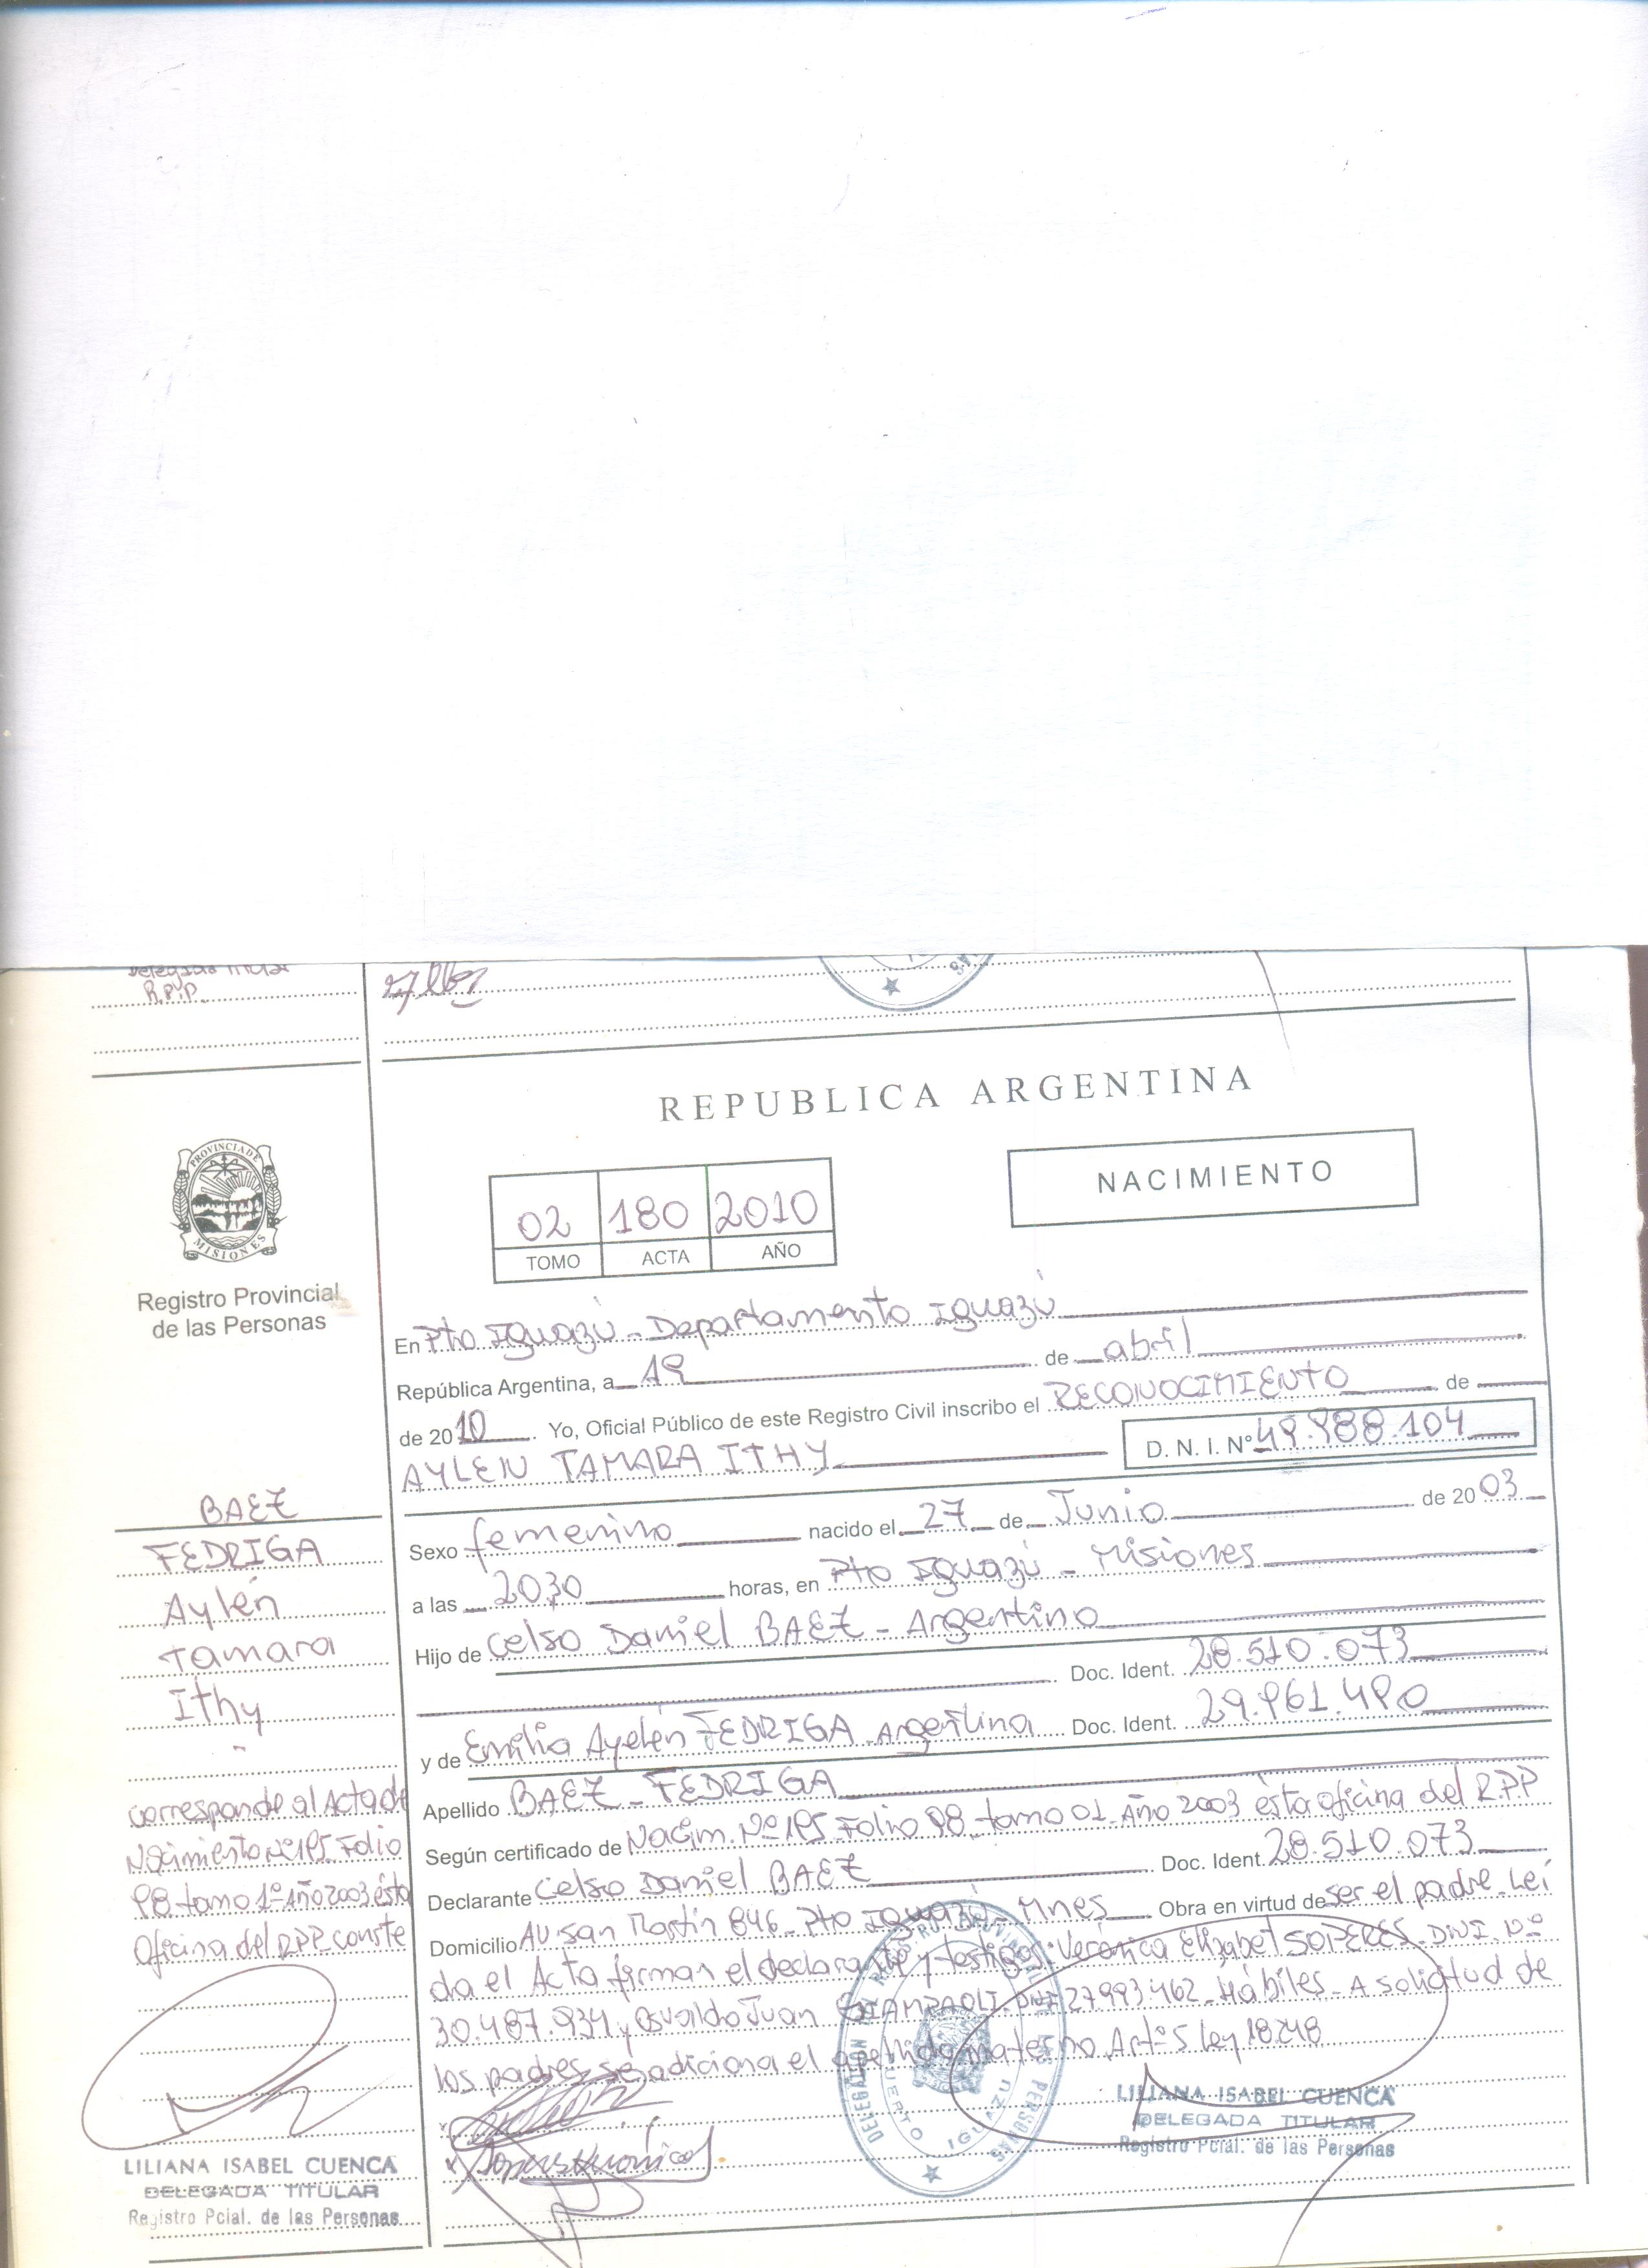 R.P.P.
REPUBLICA ARGENTINA
NACIMIENTO
02 180 2010
TOMO ACTA AÑO
PROVINCIA DE
MISIONES
Registro Provincial
de las Personas
En Pto Iguazú - Departamento Iguazú
República Argentina, a 19 de abril
de 2010. Yo, Oficial Público de este Registro Civil inscribo el RECONOCIMIENTO de
AYLEN TAMARA ITHY D. N. I. Nº 49.988.104
BAEZ
FEDRIGA
Aylén
Tamara
Ithy
Sexo femenino nacido el 27 de Junio de 2003
a las 20,30 horas, en Pto Iguazú - Misiones
Hijo de Celso Daniel BAEZ - Argentino
Doc. Ident. 28.510.073
y de Emilia Ayelén FEDRIGA - Argentina Doc. Ident. 29.961.490
Apellido BAEZ - FEDRIGA
Según certificado de Nacim. Nº 195 Folio 98 tomo 01 Año 2003 ésta oficina del R.P.P
Declarante Celso Daniel BAEZ Doc. Ident. 28.510.073
Domicilio AV San Martín 846 - Pto Iguazú - Mnes Obra en virtud de ser el padre - Leí
da el Acta firman el declarante y testigos: Verónica Elizabet DNI. Nº
30.487.934 y Osvaldo Juan GIAMPAOLI DNI 27993462 - Hábiles - A solicitud de
los padres se adiciona el apellido materno Artº 5 Ley 18248
corresponde al Acta de
Nacimiento Nº 195 Folio
98 tomo 1º Año 2003 ésta
Oficina del RPP conste
LILIANA ISABEL CUENCA
DELEGADA TITULAR
Registro Pcial. de las Personas
LILIANA ISABEL CUENCA
DELEGADA TITULAR
Registro Pcial. de las Personas
PUERTO IGUAZU